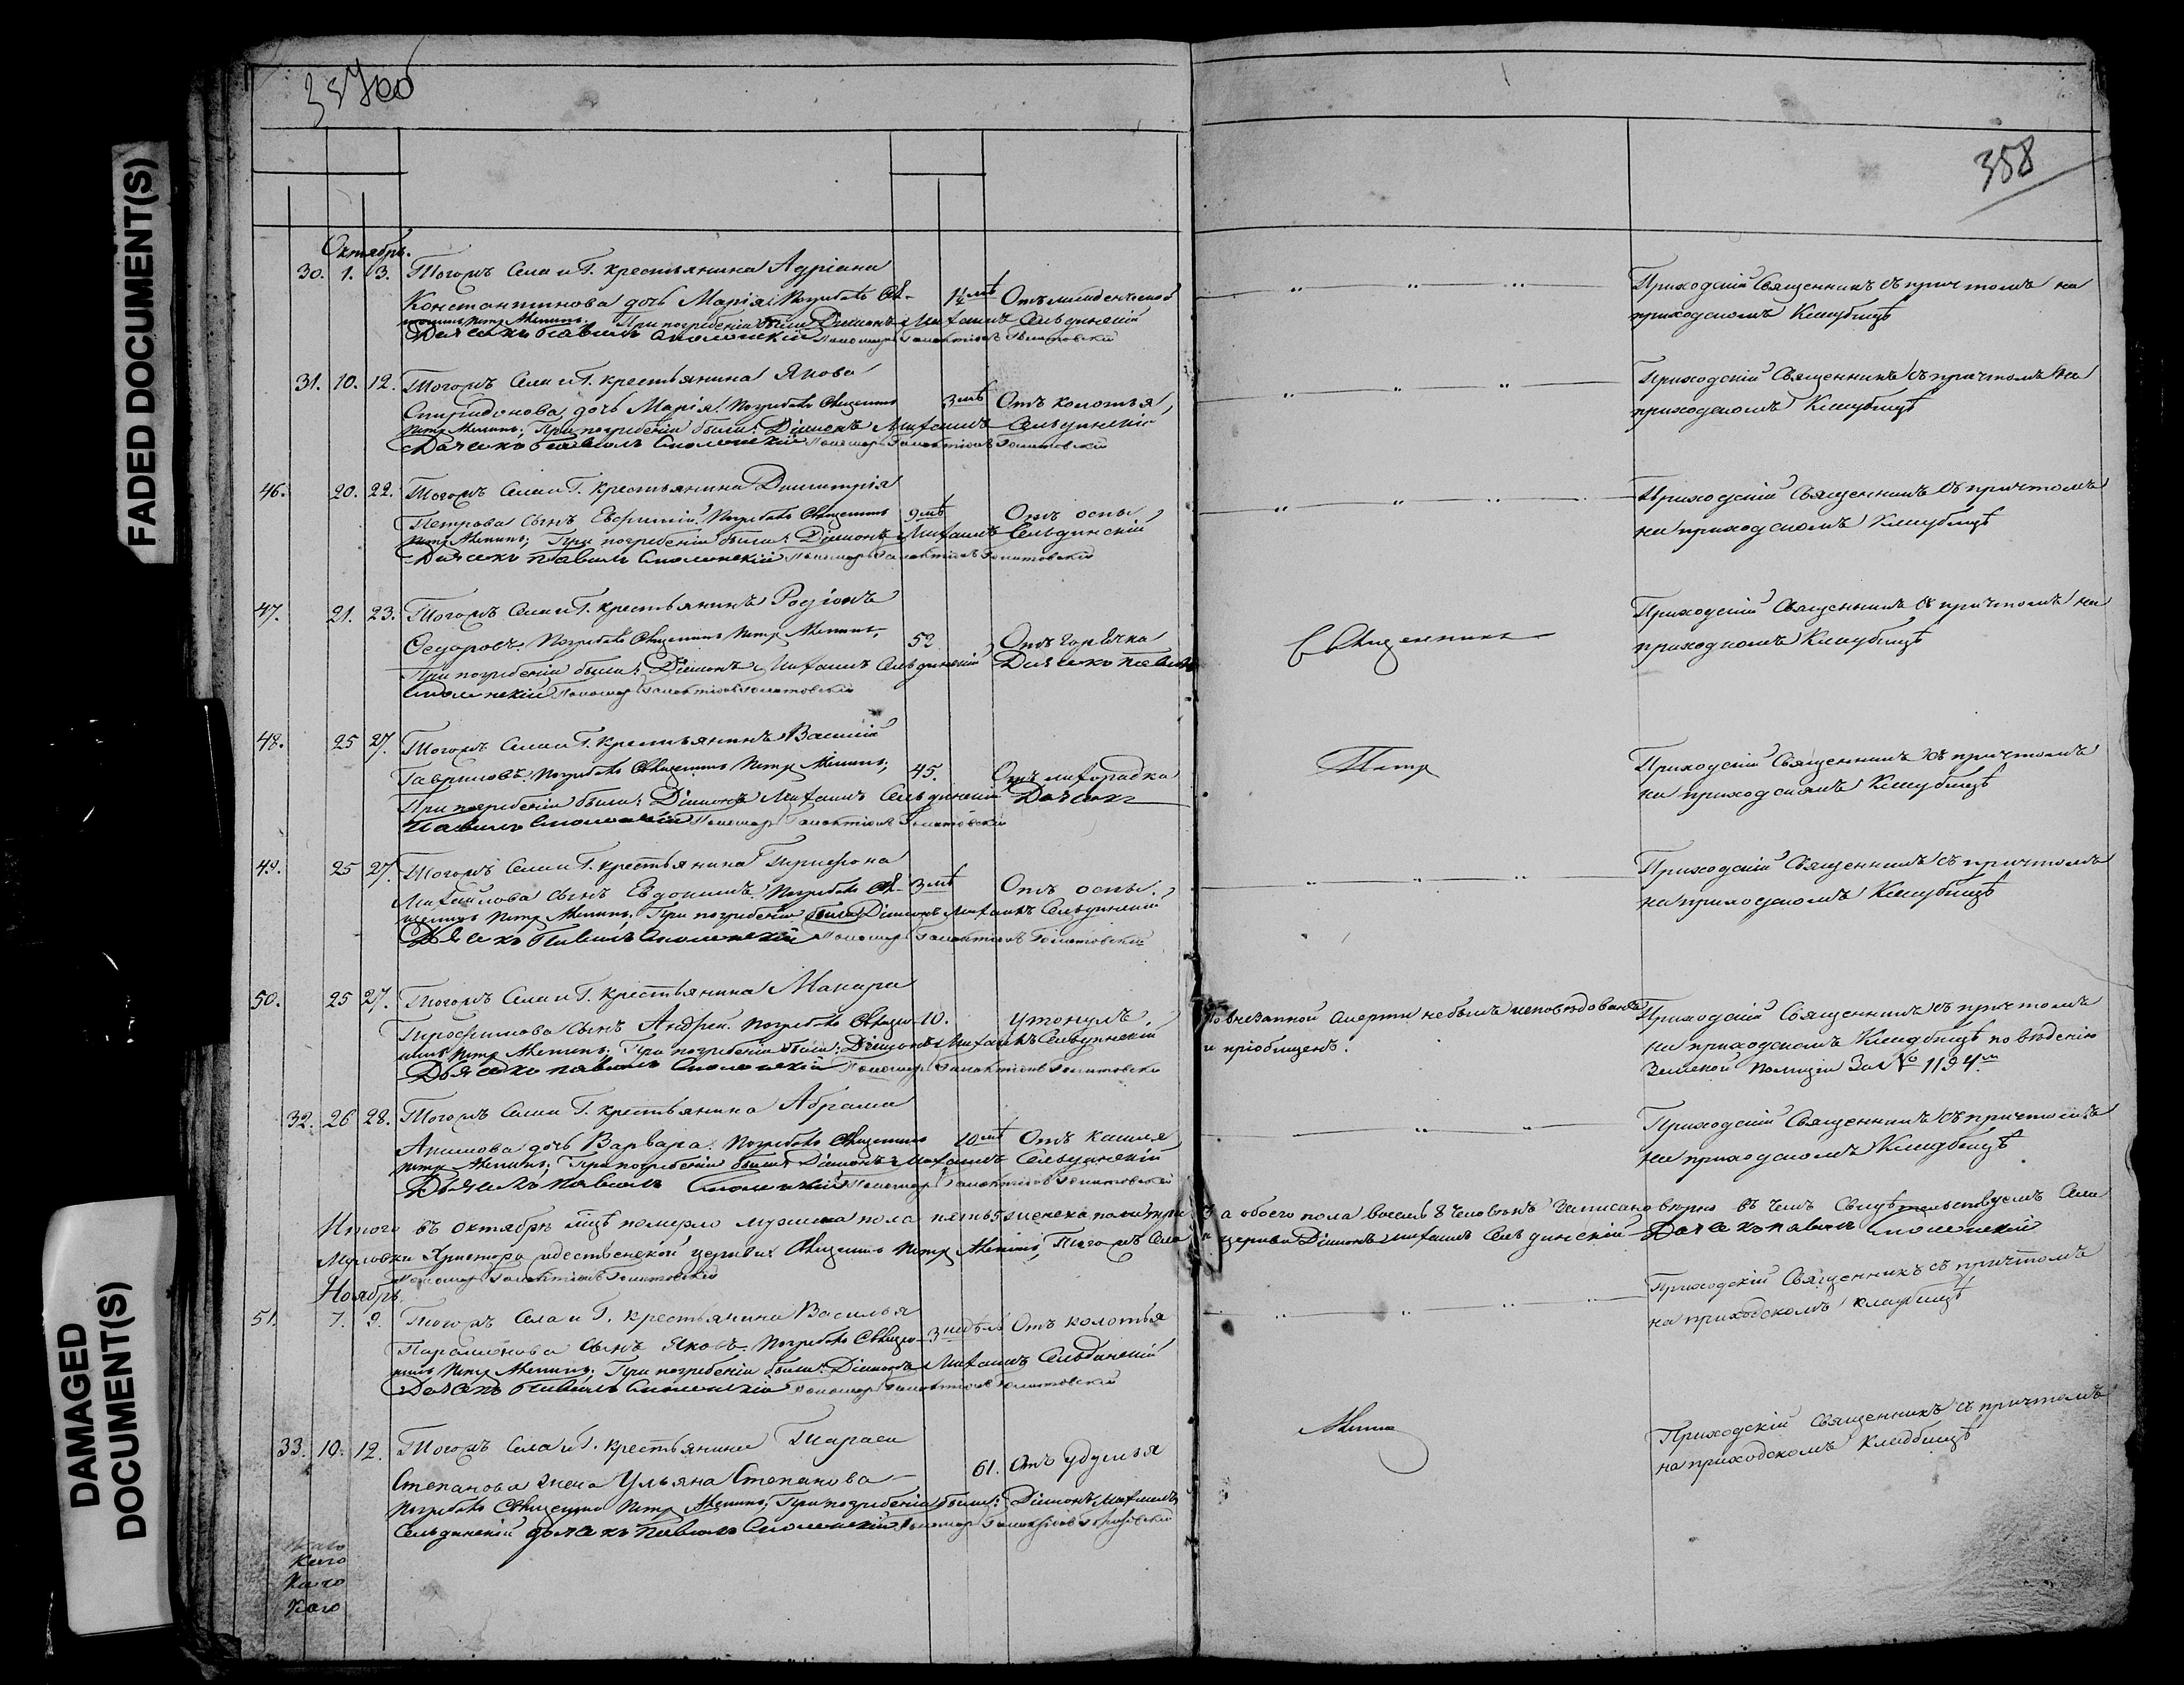 FADED DOCUMENT(S)
DAMAGED DOCUMENT(S)
358
Октябрь.
30. 1. 3. Тогожъ Села и Г. крестьянина Адріана
Константинова дочь Марія. Погребалъ Св- 1½ лѣтъ Отъ младенческой
щенникъ Петръ При погребеніи были: Діаконъ Михаилъ Сельдинскій
Дьячекъ Павелъ Смоленскій Пономарь Галактіонъ
Приходскій Священникъ съ причтомъ на
приходскомъ Кладбищѣ
31. 10. 12. Тогожъ Села и Г. крестьянина Якова
Спиридонова дочь Марія. Погребалъ Священникъ 3 лѣтъ Отъ колотья
Петръ При погребеніи были: Діаконъ Михаилъ Сельдинскій
Дьячекъ Павелъ Смоленскій Пономарь Галактіонъ
Приходскій Священникъ съ причтомъ на
приходскомъ Кладбищѣ
46. 20. 22. Тогожъ Села и Г. крестьянина Димитрія
Петрова сынъ Евфимій. Погребалъ Священникъ 9 лѣтъ Отъ оспы
Петръ При погребеніи были: Діаконъ Михаилъ Сельдинскій
Дьячекъ Павелъ Смоленскій Пономарь Галактіонъ
Приходскій Священникъ съ причтомъ
на приходскомъ Кладбищѣ
47. 21. 23. Тогожъ Села и Г. крестьянинъ Родіонъ
Ѳедоровъ. Погребалъ Священникъ Петръ 52 Отъ горячка
При погребеніи были: Діаконъ Михаилъ Сельдинскій Дьячекъ Павелъ
Смоленскій Пономарь Галактіонъ
Священникъ
Приходскій Священникъ съ причтомъ на
приходскомъ Кладбищѣ
48. 25 27. Тогожъ Села и Г. крестьянинъ Василій
Гавриловъ. Погребалъ Священникъ Петръ 45. Отъ лихорадка
При погребеніи были: Діаконъ Михаилъ Сельдинскій Дьячекъ
Павелъ Смоленскій Пономарь Галактіонъ
Петръ
Приходскій Священникъ съ причтомъ
на приходскомъ Кладбищѣ
49. 25 27. Тогожъ Села и Г. крестьянина Трифона
Михайлова сынъ Евдокимъ. Погребалъ Св- 3 лѣтъ Отъ оспы.
щенникъ Петръ При погребеніи были Діаконъ Михаилъ Сельдинскій
Дьячекъ Павелъ Смоленскій Пономарь Галактіонъ
Приходскій Священникъ съ причтомъ
на приходскомъ Кладбищѣ
50. 25 27. Тогожъ Села и Г. крестьянина Макара
Трофимова сынъ Андрей. Погребалъ Священ- 10. утонулъ.
никъ Петръ При погребеніи были: Діаконъ Михаилъ Сельдинскій
Дьячекъ Павелъ Смоленскій Пономарь Галактіонъ
По внезапной смерти небылъ исповѣдованъ
и пріобщенъ.
Приходскій Священникъ съ причтомъ
на приходскомъ Кладбищѣ по вѣдѣнію
Земской полиціи За № 1194м
32. 26 28. Тогожъ Села и Г. крестьянина Абрама
Акимова дочь Варвара. Погребалъ Священникъ 10 лѣтъ Отъ кашля
Петръ При погребеніи были Діаконъ Михаилъ Сельдинскій
Дьячекъ Павелъ Смоленскій Пономарь Галактіонъ
Приходскій Священникъ съ причтомъ
на приходскомъ Кладбищѣ
Итого въ октябрѣ мцѣ померло мужеска пола пять 5 женска пола три 3 а обоего пола восемь 8 человѣкъ писано вѣрно въ чемъ Свидѣтельствуемъ Села
Христорождественской церкви Священникъ Петръ Тогожъ Села и церкви Діаконъ Михаилъ Сельдинскій Дьячекъ Павелъ Смоленскій
Пономарь Галактіонъ
Ноябрь.
51. 7. 9. Тогожъ Села и Г. крестьянина Василья
Парамонова сынъ Яковъ. Погребалъ Священ- 3 недѣль Отъ колотья
никъ Петръ При погребеніи были: Діаконъ Михаилъ Сельдинскій
Дьячекъ Павелъ Смоленскій Пономарь Галактіонъ
Приходскій Священникъ съ причтомъ
на приходскомъ кладбищѣ
33. 10. 12. Тогожъ Села и Г. крестьянина Тараса
Степанова жена Ульяна Степанова 61. Отъ удушья
Погребалъ Священникъ Петръ При погребеніи были: Діаконъ Михаилъ
Сельдинскій дьячекъ Павелъ Смоленскій Пономарь Галактіонъ
Приходскій Священникъ съ причтомъ
на приходскомъ Кладбищѣ
Каго
Каго
Каго